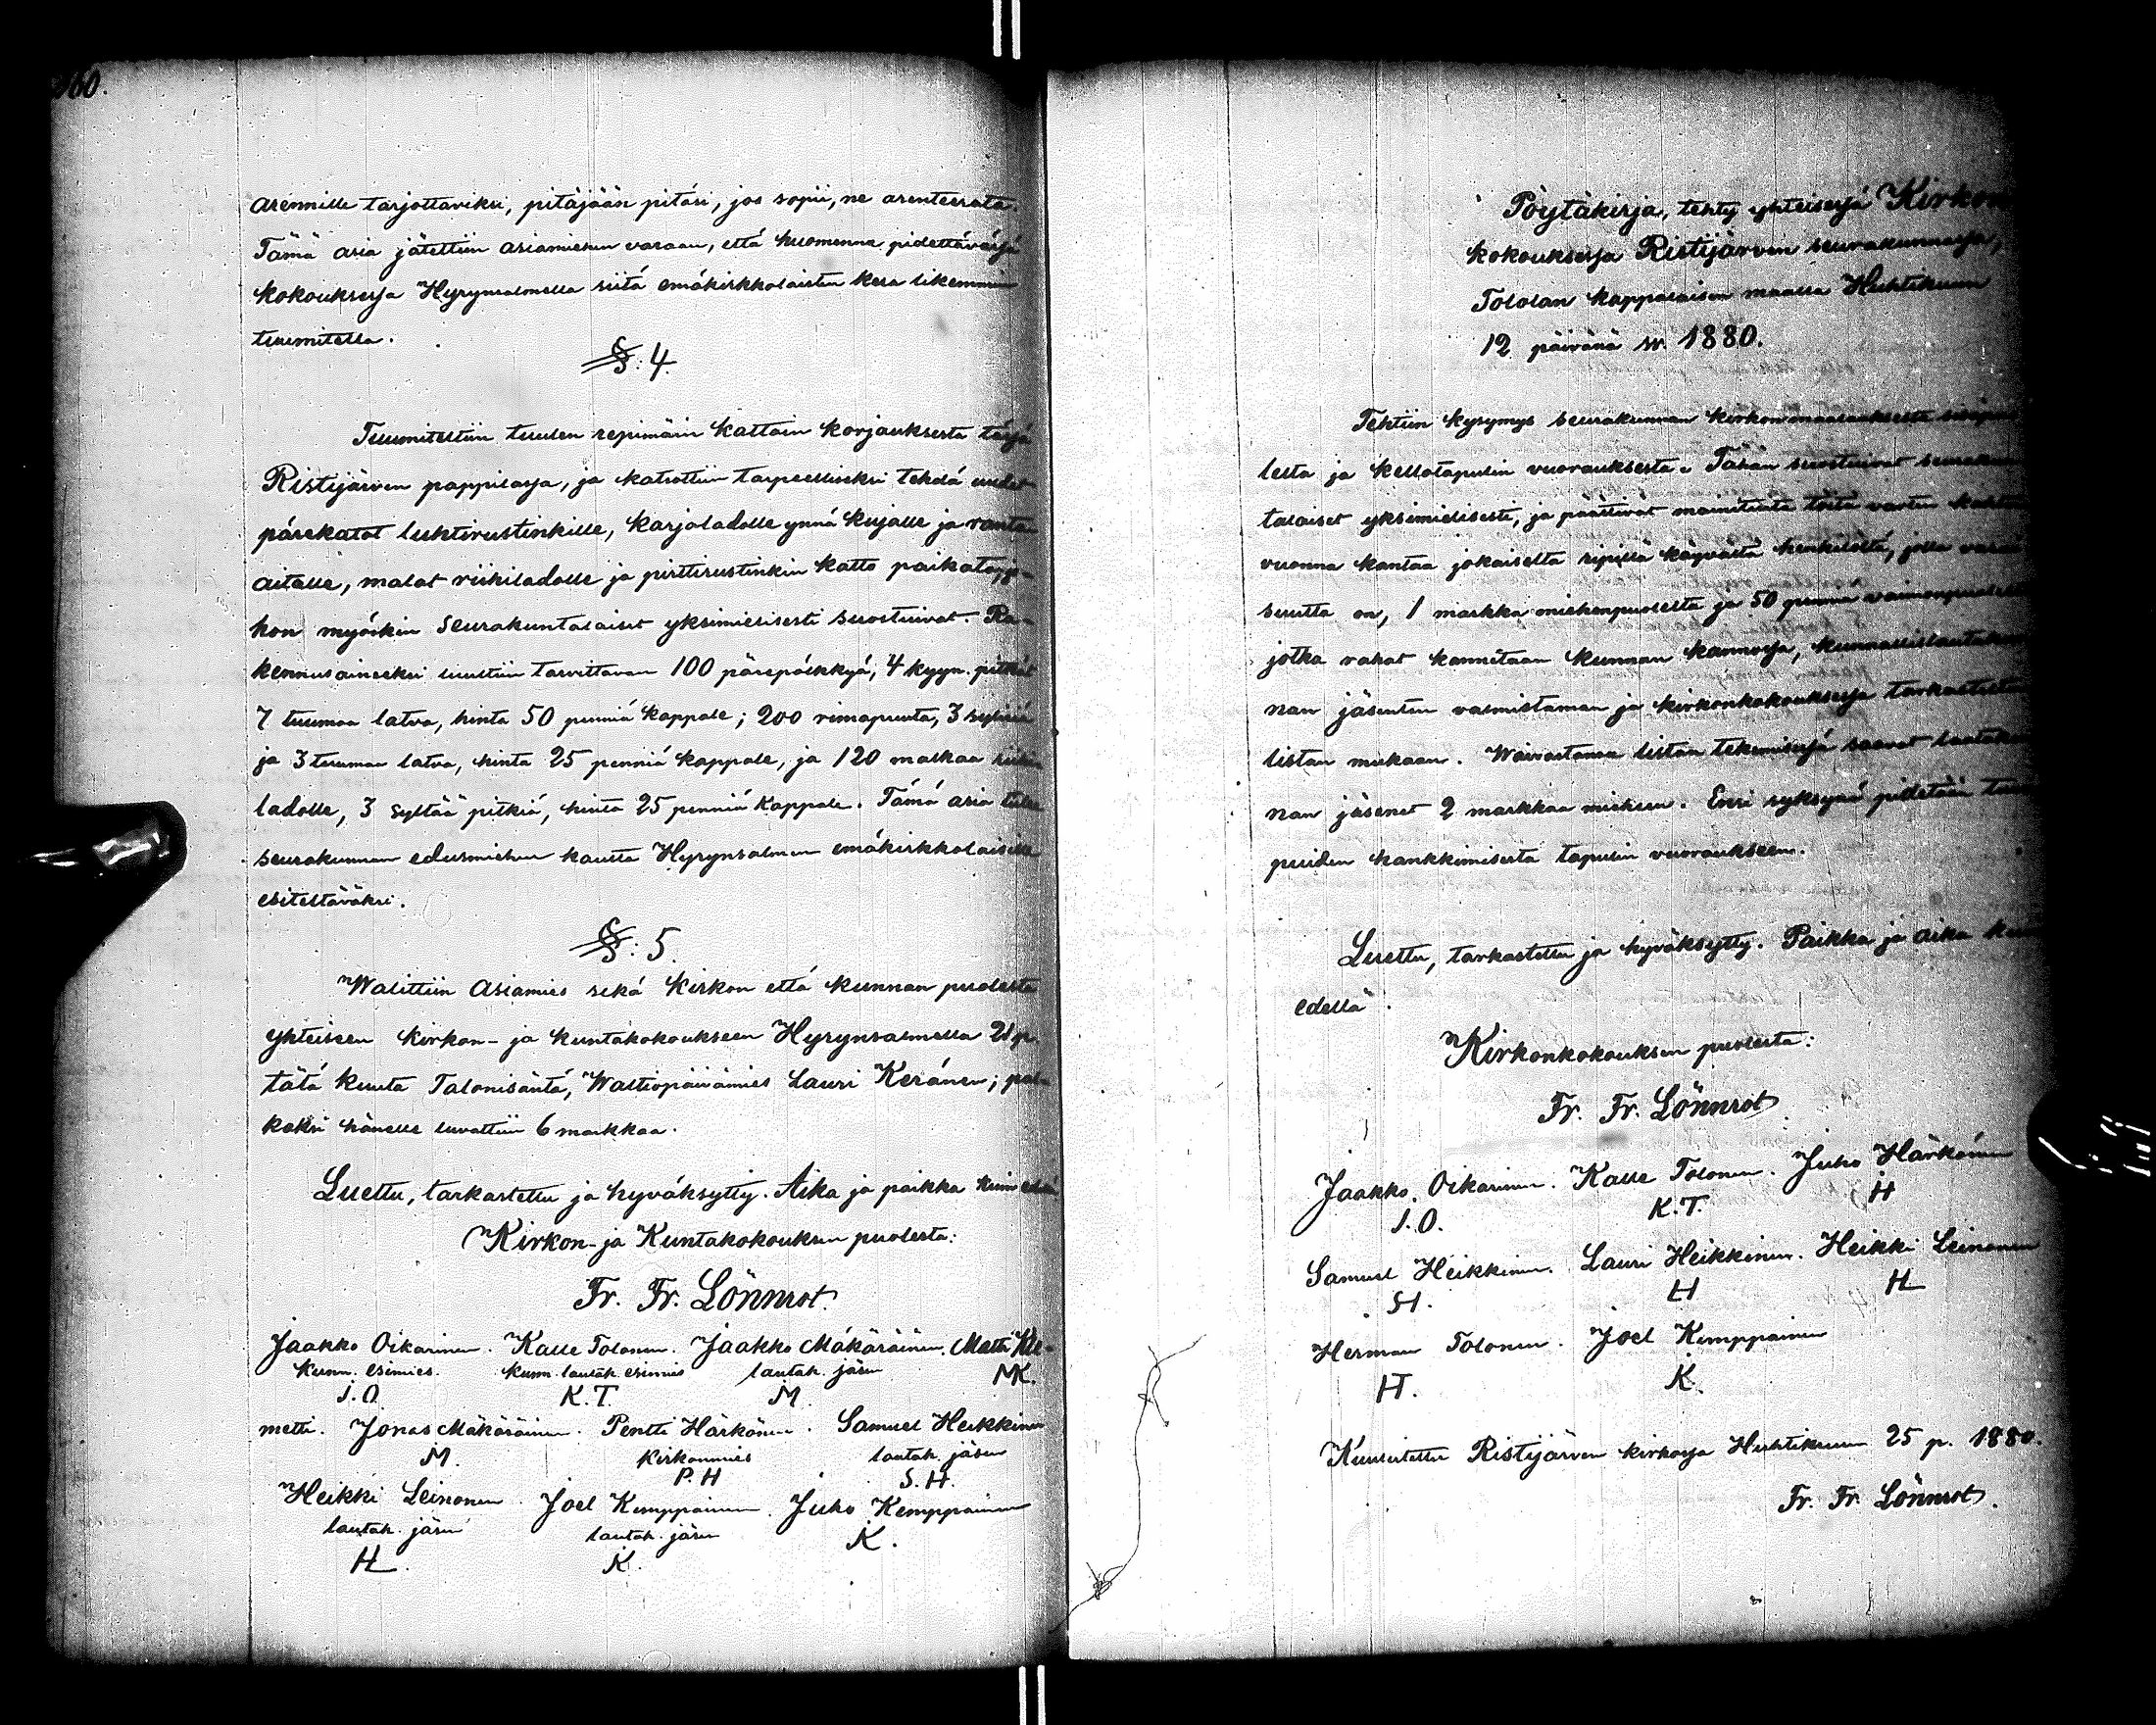 360.
arennille tarjottaviksi, pitäjään pitäisi, jos sopii, ne arenteerata.
Tämä asia jätettiin asiamiehen varaan, että huomenna pidettävässä
kokouksessa Hyrynsalmella siitä emäkirkkolaisten kera likemmin
tuumitella.
§: 4.
Tuumiteltiin tuulen repimäin kattoin korjauksesta tässä
Ristijärven pappilassa, ja katsottiin tarpeelliseksi tehdä uudet
pärekatot luhtirustinkille, karjaladolle ynnä kujalle ja ranta
aitalle, malat riihiladolle ja pirttirustinkin katto paikata, jo-
hon myöskin seurakuntalaiset yksimielisesti suostuivat. Ra-
kennusaineeksi luultiin tarvittavan 100 pärepölkkyä, 4 kyyn. pitkät
7 tuumaa latva, hinta 50 penniä kappale; 200 rimapuuta, 3 sylisiä
ja 3 tuuman latva, hinta 25 penniä kappale, ja 120 malkaa riihi
ladolle, 3 syltää pitkiä, hinta 25 penniä kappale. Tämä asia tulee
seurakunnan edusmiehen kautta Hyrynsalmen emäkirkkolaisille
esiteltäväksi.
§: 5.
Walittiin asiamies sekä kirkon että kunnan puolesta
yhteiseen kirkon- ja kuntakokoukseen Hyrynsalmella 21 p.
tätä kuuta Talonisäntä, Waltiopäivämies Lauri Keränen; pal-
kaksi hänelle luvattiin 6 markkaa.
Luettu, tarkastettu ja hyväksytty. Aika ja paikka kuin edellä
Kirkon- ja Kuntakokouksen puolesta:
Fr. Fr. Lönnrot.
Jaakko Oikarinen. Kalle Tolonen. Jaakko Mäkäräinen. Matti Kle-
kunn. esimies. kunn. lautak. esimies lautak. jäsen MK.
J. O. K. T. M.
metti. Jonas Mäkäräinen. Pentti Härkönen. Samuel Heikkinen
M. Kirkonmies lautak. jäsen
P. H S. H.
Heikki Leinonen. Joel Kemppainen. Juho Kemppainen
lautak. jäsen lautak. jäsen K.
HL. K.
Pöytäkirja, tehty yhteisessä Kirkon
kokouksessa Ristijärven seurakunnassa,
Tololan kappalaisen maalla Huhtikuun
12 päivänä v. 1880.
Tehtiin kysymys seurakunnan kirkon maalauksesta sisäpuo
lelta ja kellotapulin vuorauksesta. Tähän suostuivat seurakun
talaiset yksimielisesti, ja päättivät mainituita töitä varten kahtena
vuonna kantaa jokaiselta ripillä käyvältä henkilöltä, jolla varal
suutta on, 1 markka miehenpuolelta ja 50 penniä vaimonpuolelta
jotka rahat kannetaan kunnan kannossa, kunnallislautakun
nan jäsenten valmistaman ja kirkonkokouksessa tarkastetun
listan mukaan. Waivastansa listan tekemisessä saavat lautakun
nan jäsenet 2 markkaa mieheen. Ensi syksynä pidetään
puiden hankkimisesta tapulin vuoraukseen.
Luettu, tarkastettu ja hyväksytty. Paikka ja aika kuin
edellä.
Kirkonkokouksen puolesta:
Fr. Fr. Lönnrot.
Jaakko Oikarinen. Kalle Tolonen. Juho Härkönen
J. O. K. T. H
Samuel Heikkinen. Lauri Heikkinen. Heikki Leinonen
SH. LH HL
Herman Tolonen. Joel Kemppainen
HT. K.
Kuulutettu Ristijärven kirkossa Huhtikuun 25 p. 1880.
Fr. Fr. Lönnrot.